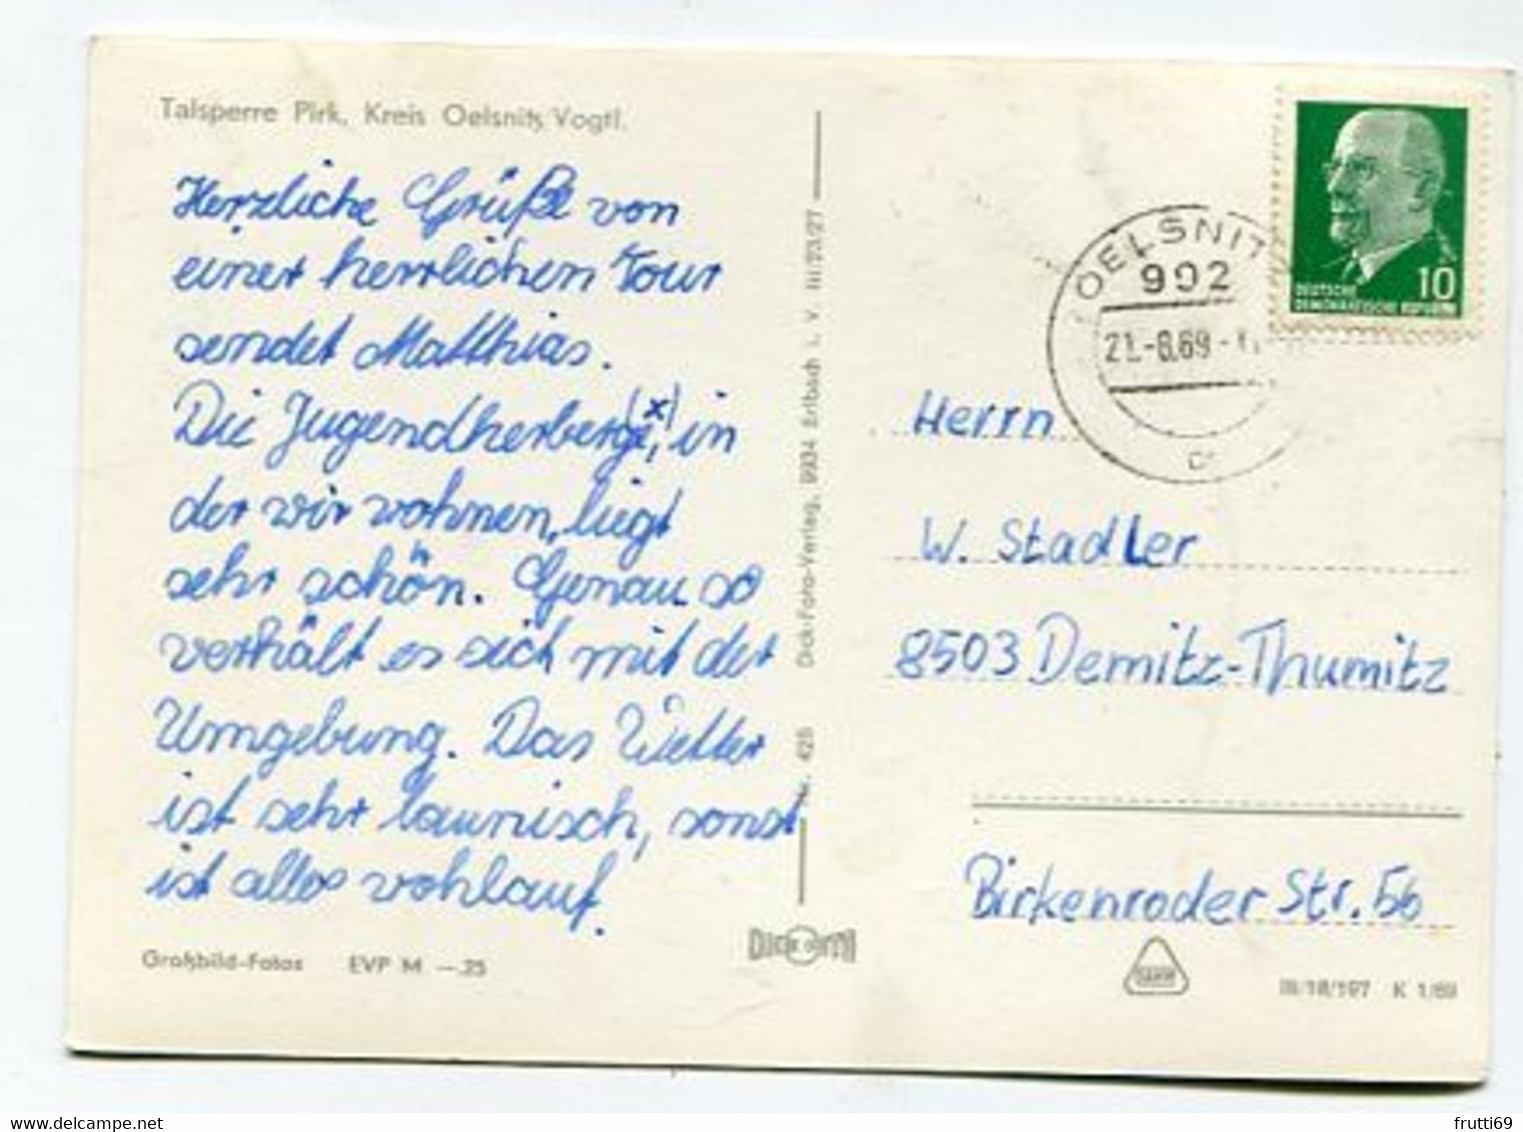 Talsperre Pirk, Kreis Oelsnitz Vogtl.
Herzliche Grüße von
einer herrlichen Tour
sendet Matthias.
Die Jugendherberge (x), in
der wir wohnen, liegt
sehr schön. Genau so
verhält es sich mit der
Umgebung. Das Wetter
ist sehr launisch, sonst
ist alles wohlauf.
Großbild-Fotos EVP M —.25
Nr. 425 Dick-Foto-Verlag, 9934 Erlbach i. V. III/23/27
OELSNITZ
992
21.-8.69
10
DEUTSCHE
DEMOKRATISCHE REPUBLIK
Herrn
W. Stadler
8503 Demitz-Thumitz
Birkenroder Str. 56
III/18/197 K 1/69
delcampe.net
frutti69